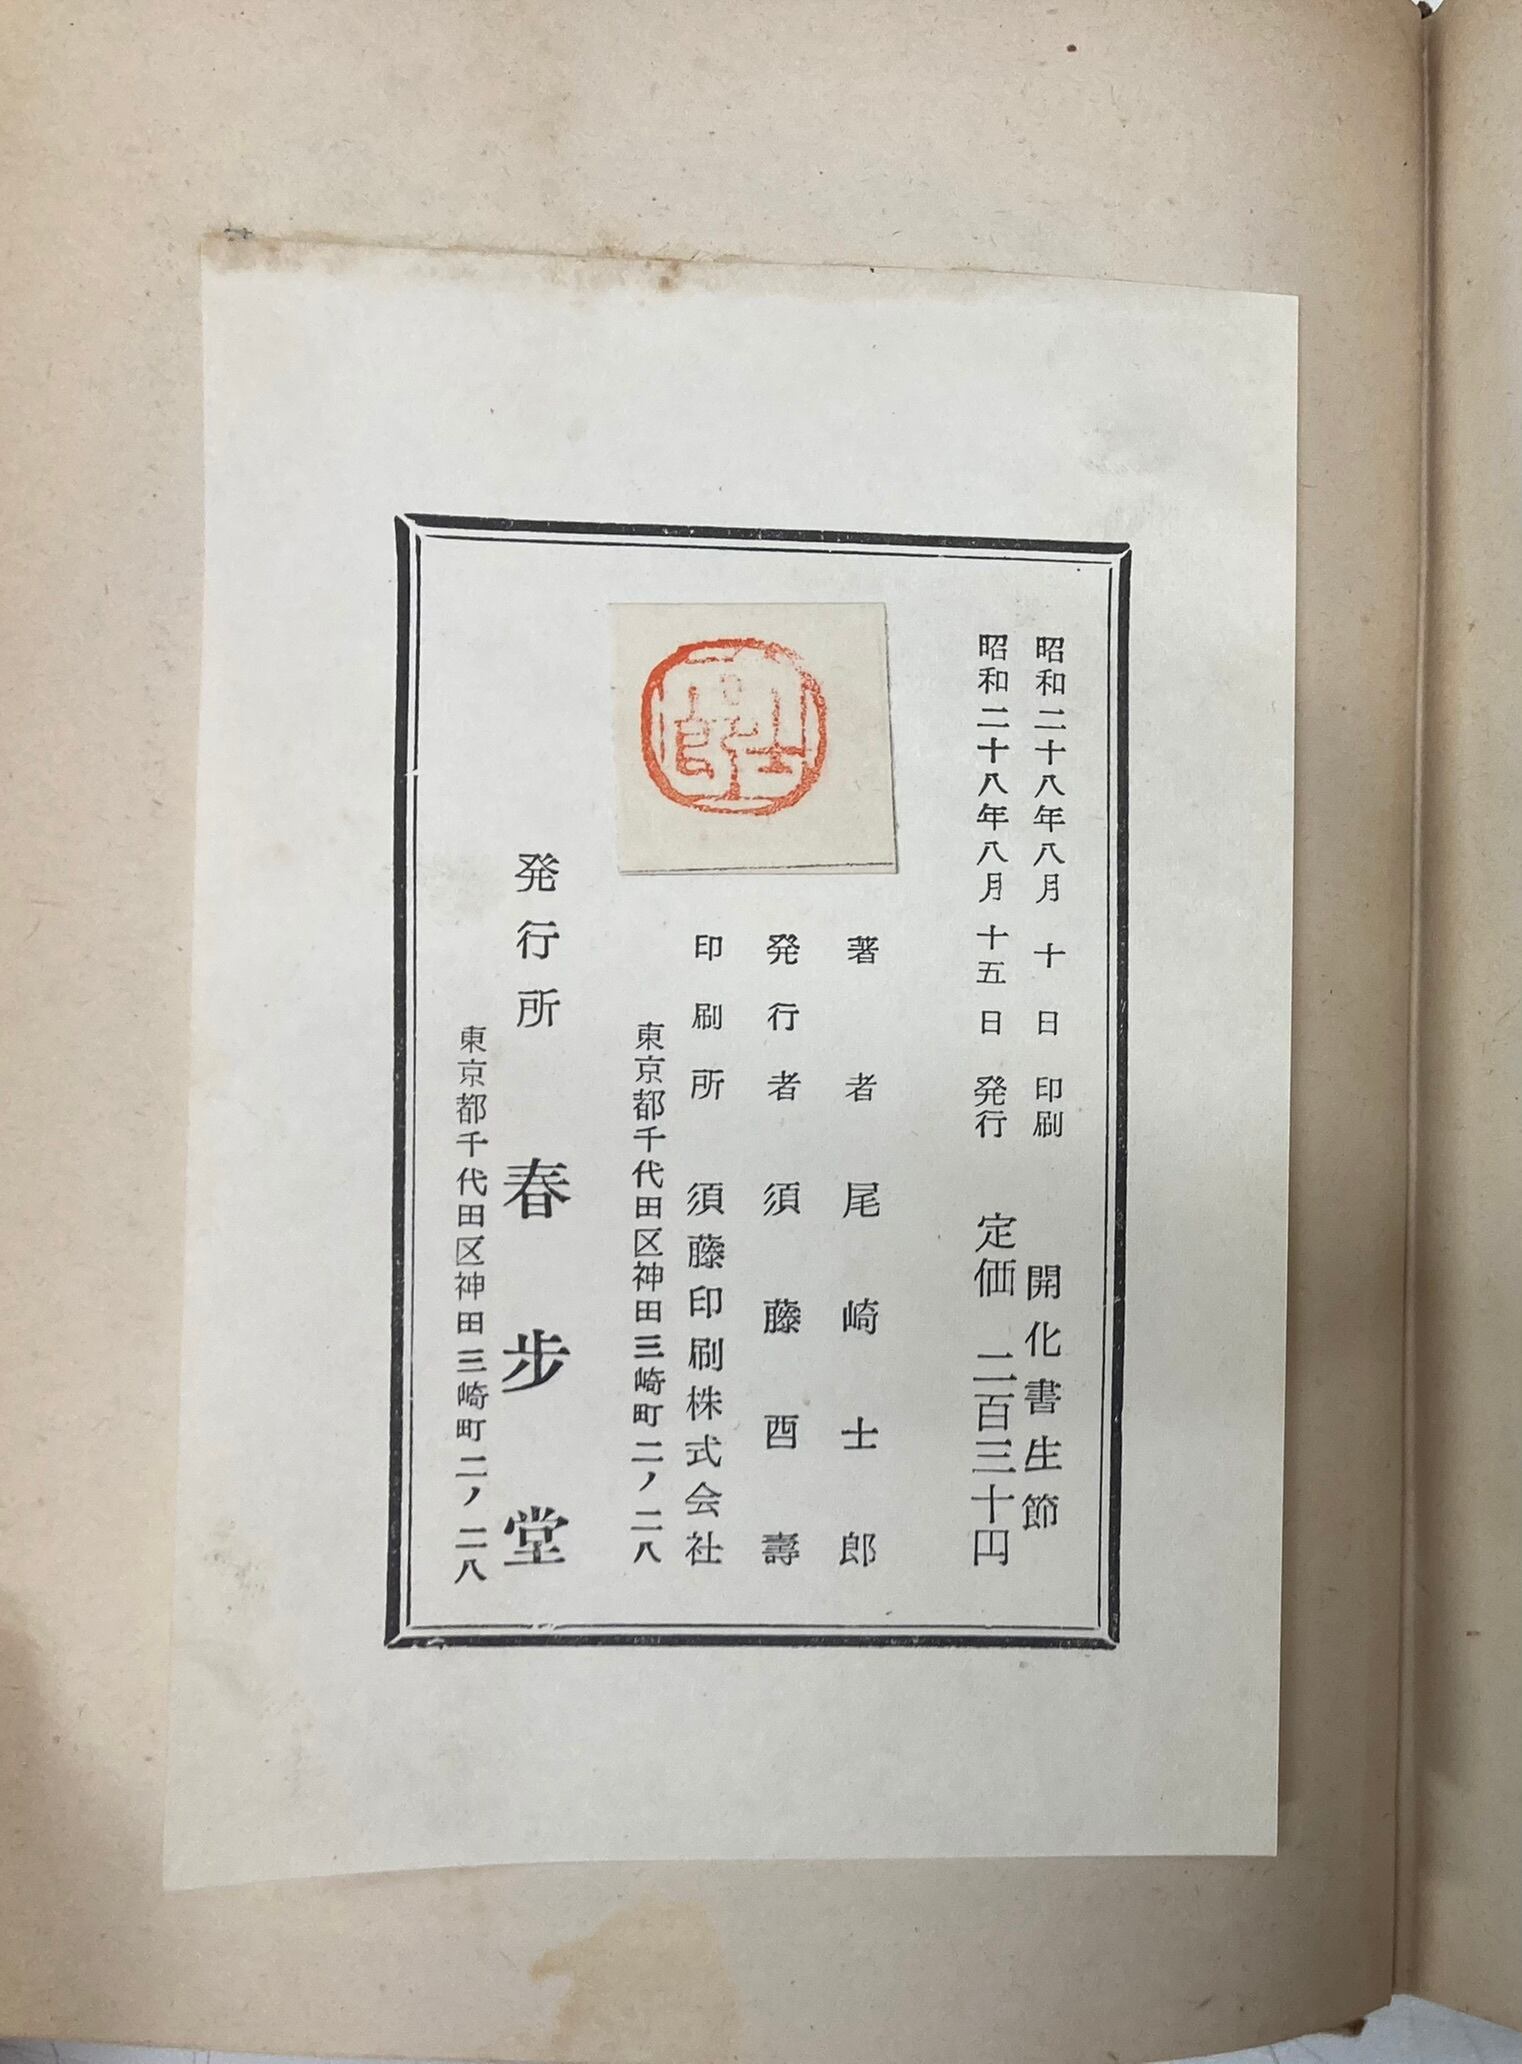 昭和二十八年八月十日印刷
昭和二十八年八月十五日発行
開化書生節
定価 二百三十円
著者 尾崎士郎
発行者 須藤酉壽
印刷所 須藤印刷株式会社
東京都千代田区神田三崎町二ノ二八
発行所 春步堂
東京都千代田区神田三崎町二ノ二八